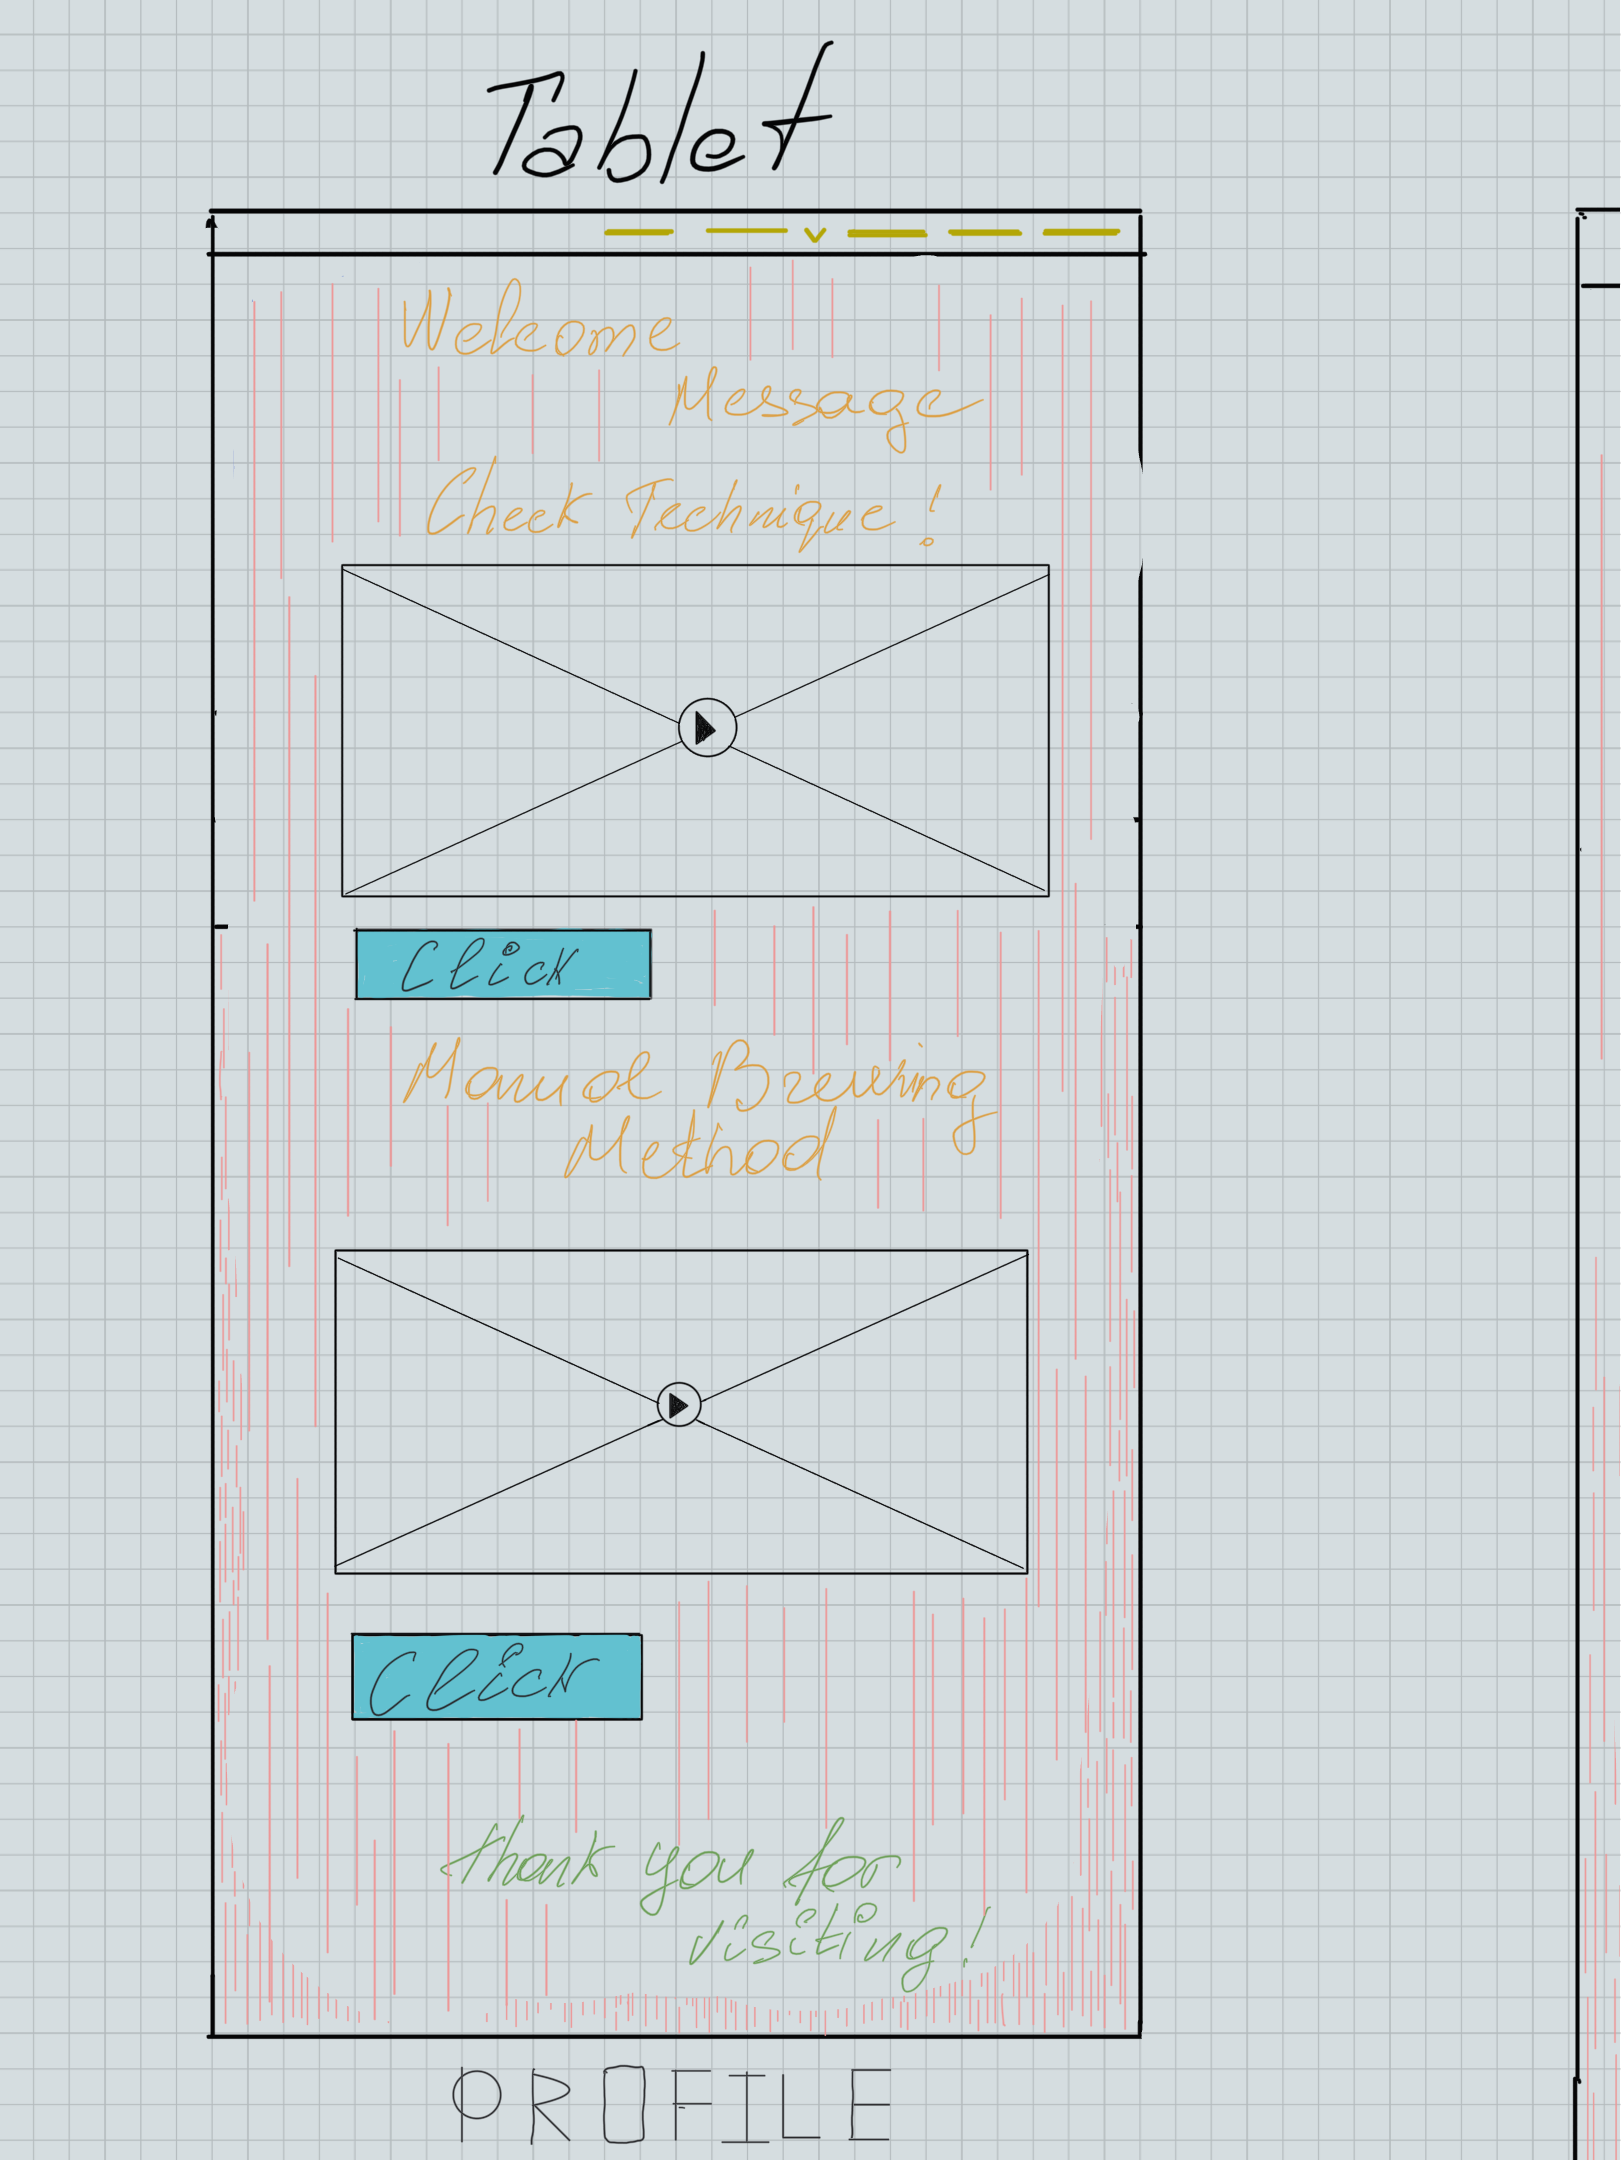 Tablet
Welcome
Message
Check Technique!
Click
Manual Brewing
Method
Click
Thank you for
visiting!
PROFILE